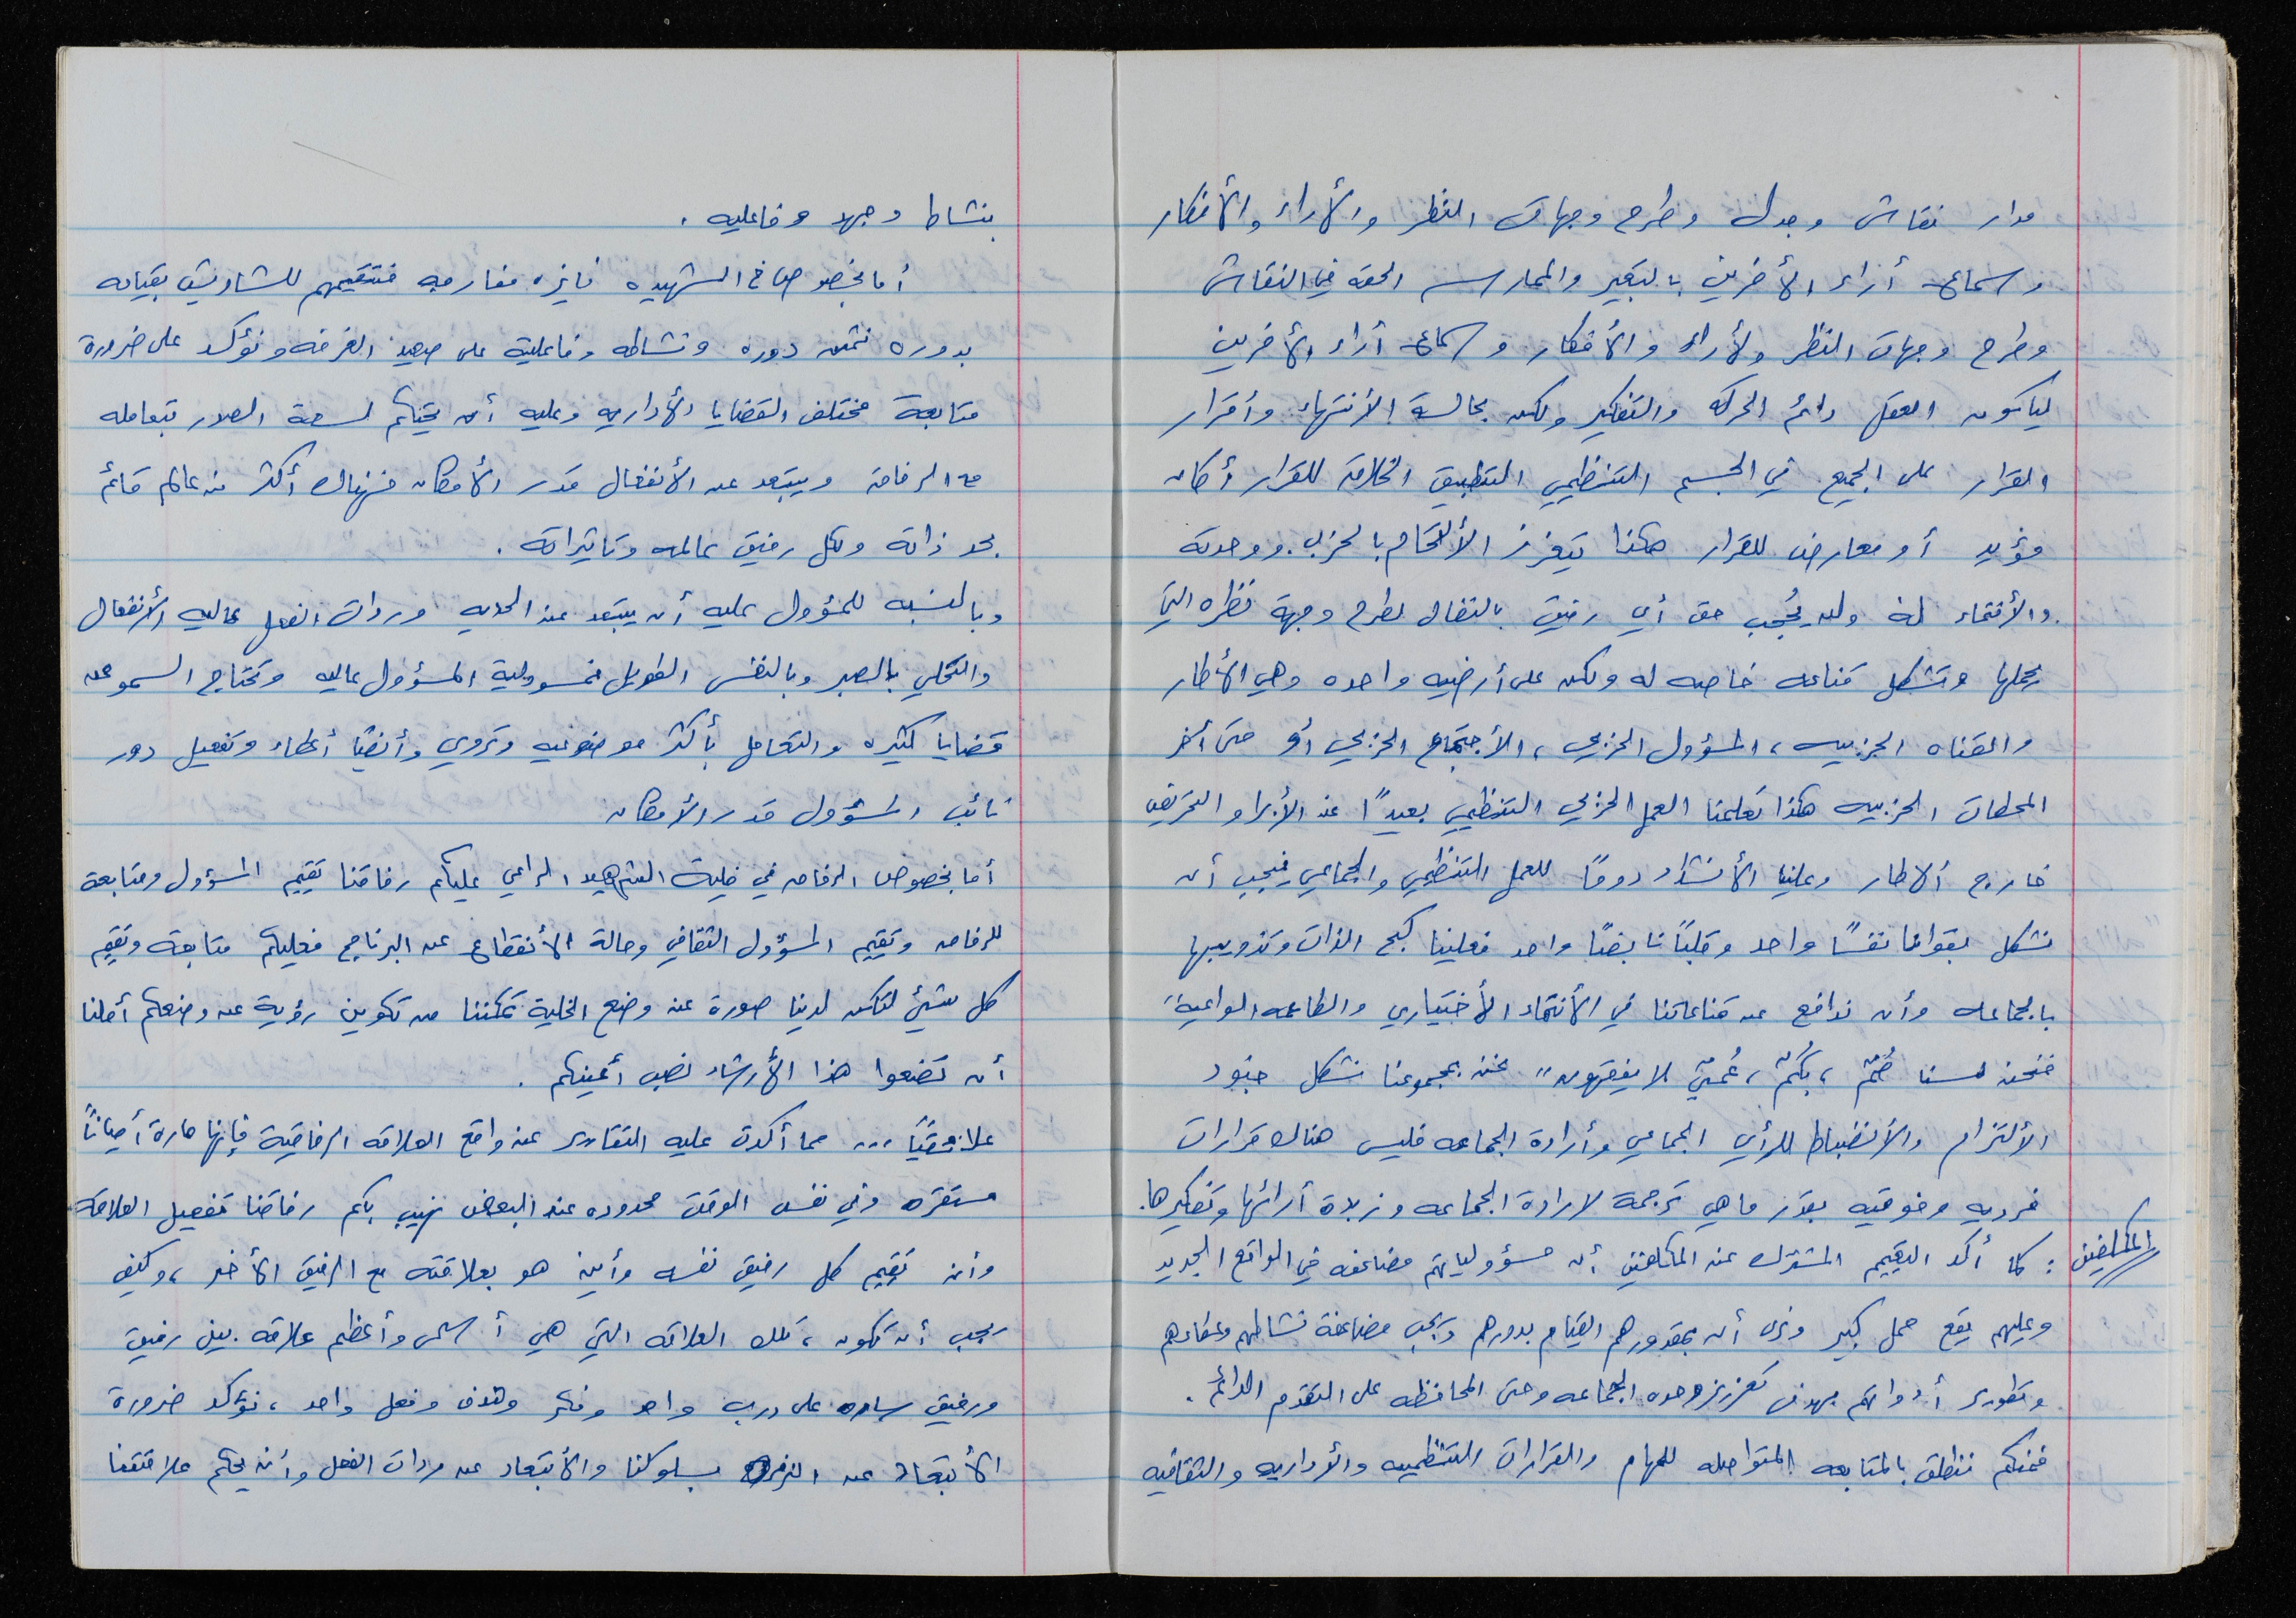 مدار نقاش وجدل وطرح وجهات النظر والأراء والأفكار
وسماع أراء الأخرين بالتعبير والممارسه الحقه في النقاش
وطرح وجهات النظر والأراء والأفكار وسماع أراء الأخرين
لياكون العقل دائم الحركه والتفكير ولكن بحالة الأنتهاء وأقرار
القرار على الجميع في الجسم التنظيمي التطبيق الخلاق للقرار أكان
مؤيد أو معارض للقرار هكذا يتعزز الألتحام بالحزب ووحدته
والأنتماء له ولن يُحجب حق أي رفيق بالنضال لطرح وجهة نظره التي
يحملها وتشكل قناعه خاصه له ولكن على أرضيه واحده وهي الأطار
والقناه الحزبيه، المسؤول الحزبي، الأجتماع الحزبي أو حتى أخر
المحطات الحزبيه هكذا تعلمنا العمل الحزبي التنظيمي بعيداً عن الأبرا والتحريض
خارج ألاطار وعلينا الأنشداد دوماً للعمل التنظيمي والجماعي فيجب أن
نشكل بقوانا نفساً واحد وقلباً نابضاً واحد فعلينا كبح الذات وتذويبها
بالجماعه وأن ندافع عن قناعاتنا في الأنتماء الأختياري والطاعه الواعية
فنحن لسنا صُمٌ، بُكمٌ، عُميٌ لا يفقهون" نحن بمجموعنا نشكل جنود
الألتزام والأنضباط للرأي الجماعي وأرادة الجماعه فليس هناك قرارات
فرديه وفوقيه بقدر ما هي ترجمة لارادة الجماعه وزبدة أرائها وتفكيرها.
المكلفين: كما أكد التقييم المشترك عن المكلفين أن مسؤولياتهم مضاعفه في الواقع الجديد
وعليهم يقع حمل كبير ونرى أن بمقدورهم القيام بدورهم ويجب مضاعفة نشاطهم وعطاءهم
وتطوير أدواتهم بهدف تعزيز وحده الجماعه وحتى المحافظه على التقدم الدائم.
فمنكم ننطلق بالمتابعه المتواصله للمهام والقرارات التنظيميه والأداريه والثقافيه
بنشاط وجهد وفاعليه.
أما بخصوص خ الشهيده فايزه مفارجه فتقييمهم للشاويش بقيامه
بدوره نثمن دوره ونشاطه وفاعليته على صعيد الغرفه ونؤكد على ضرورة
متابعة مختلف القضايا الأداريه وعليه أن يحتكم لسعة الصدر بتعامله
مع الرفاق ويبتعد عن الأنفعال قدر الأمكان فهناك أكثر من عالم قائم
بحد ذاته ولكل رفيق عالمه وتاثيراته.
وبالنسبه للمسؤول عليه أن يبتعد عن الحديه وردات الفعل عاليه الأنفعال
والتحلي بالصبر وبالنفس الطويل فمسوولية المسؤول عاليه وتحتاج السمو عن
قضايا كثيره والتعامل بأكثر موضوعيه وتروي وأيضاً أعطاء وتفعيل دور
نائب المسؤول قدر الأمكان
أما بخصوص الرفاق في خلية الشهيد الراعي عليكم رفاقنا تقييم المسؤول ومتابعة
للرفاق وتقييم المسؤول الثقافي وحالة الأنقطاع عن البرنامج فعليكم متابعة وتقييم
كل شيئ لتكن لدينا صورة عن وضع الخلية تمكننا من تكوين رؤية عن وضعكم أملنا
أن تضعوا هذا الأرشاد نصب أعينكم.
علائقياً ... مما أكدت عليه التقارير عن واقع العلاقه الرفاقية فإنها حارة أحياناً
مستقره وفي نفس الوقت محدوده عند البعض نهيب بكم رفاقنا تفعيل العلاقة
وأن يقيم كل رفيق نفسه وأين هو بعلاقته مع الرفيق الأخر، وكيف
يجب أن تكون، تلك العلاقه التي هي أسمى وأعظم علاقه بين رفيق
ورفيق ساره على درب واحد وفكر وهدف وفعل واحد، نؤكد ضرورة
الأبتعاد عن بسلوكنا والأبتعاد عن ردات الفعل وأن يحكم علاقتنا